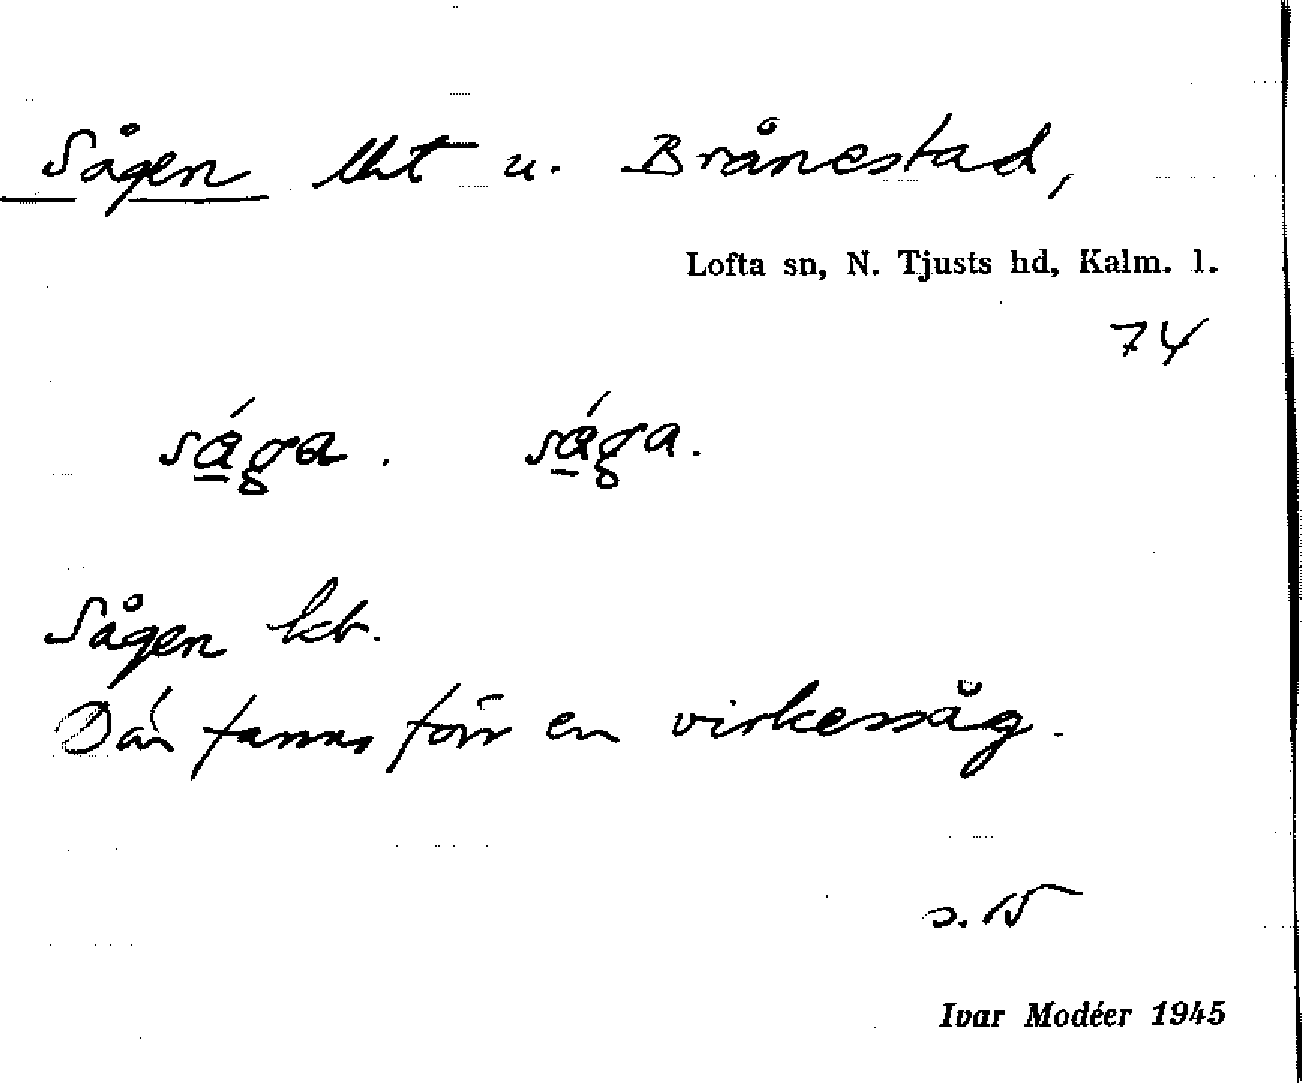 Sågen lht u. Brånestad,
Lofta sn, N. Tjusts hd, Kalm. l.
74
sá̲ga. sá̲ga.
Sågen kb.
Där fanns förr en virkessåg.
Ivar Modéer 1945